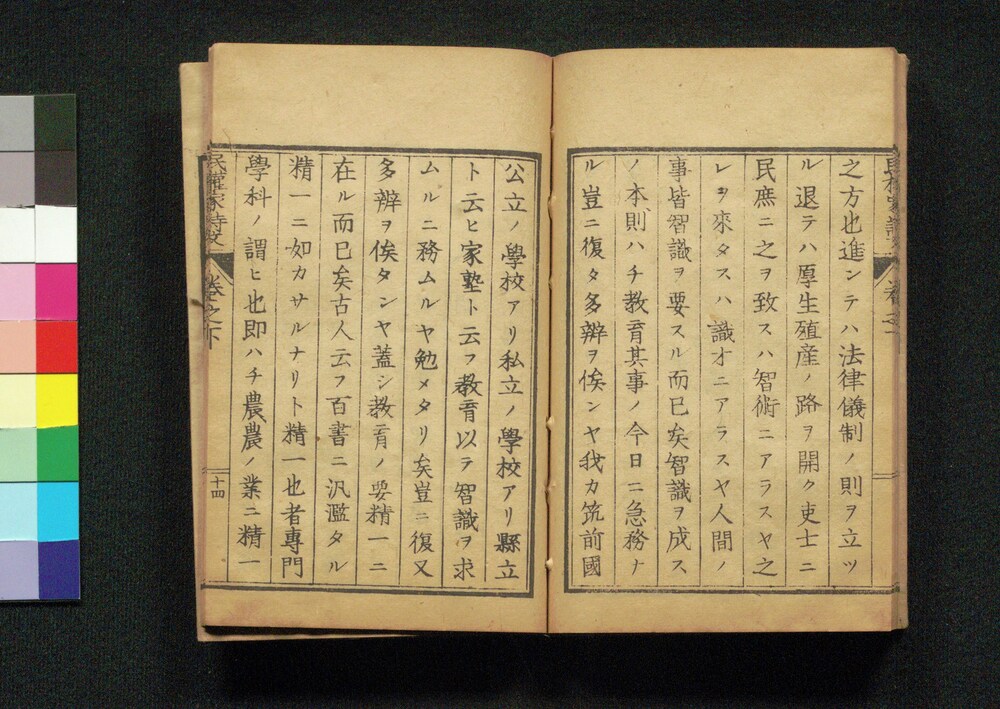 之方也進ンテハ法律儀制ノ則ヲ立ツ
ル退テハ厚生殖産ノ路ヲ開ク吏士ニ
民庶ニ之ヲ致スハ智術ニアラスヤ之
レヲ來タスハ識才ニアラスヤ人間ノ
事皆智識ヲ要スル而已矣智識ヲ成ス
ノ本則ハチ教育其事ノ今日ニ急務ナ
ル豈ニ復タ多辨ヲ俟ンヤ我カ筑前國
公立ノ學校アリ私立ノ學校アリ縣立
ト云ヒ家塾ト云フ教育以テ智識ヲ求
ムルニ務ムルヤ勉メタリ矣豈ニ復又
多辨ヲ俟タンヤ蓋シ教育ノ要精一ニ
在ル而已矣古人云フ百書ニ汎濫タル
精一ニ如カサルナリト精一也者專門
學科ノ謂ヒ也即ハチ農農ノ業ニ精一
民權家詩文
卷之下
十四